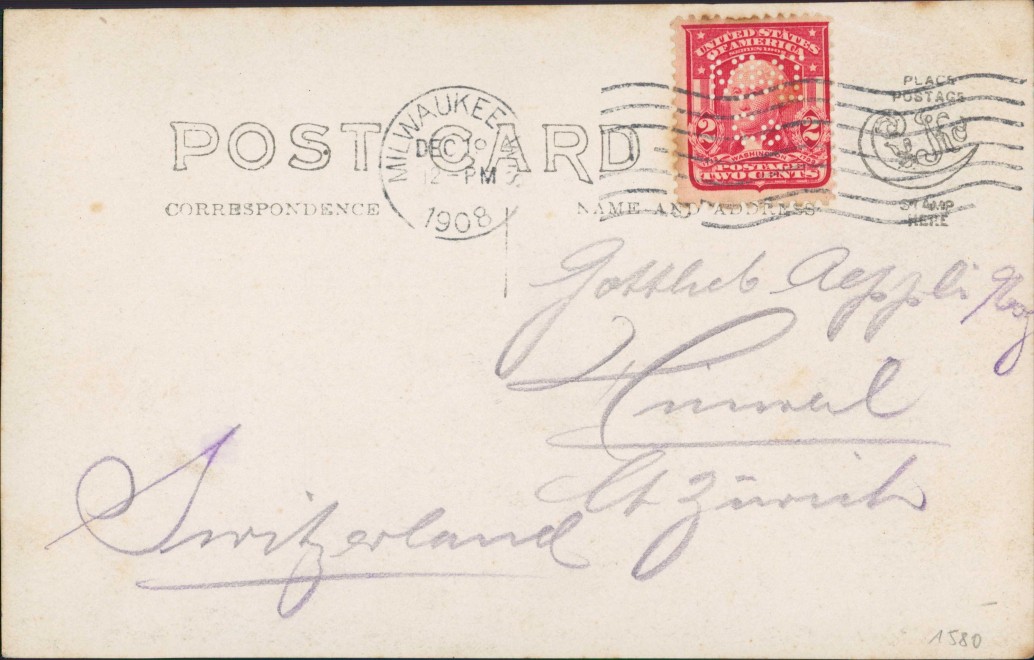 UNITED STATES
OF AMERICA
SERIES 1902
2 2
WASHINGTON
POSTAGE
TWO CENTS
PLACE
POSTAGE
STAMP
HERE
POST CARD
MILWAUKEE, WIS.
DEC
12 - PM
1908
CORRESPONDENCE
NAME AND ADDRESS
Gottlieb Aeppli
Hinweil
Ct Zürich
Switzerland
1580